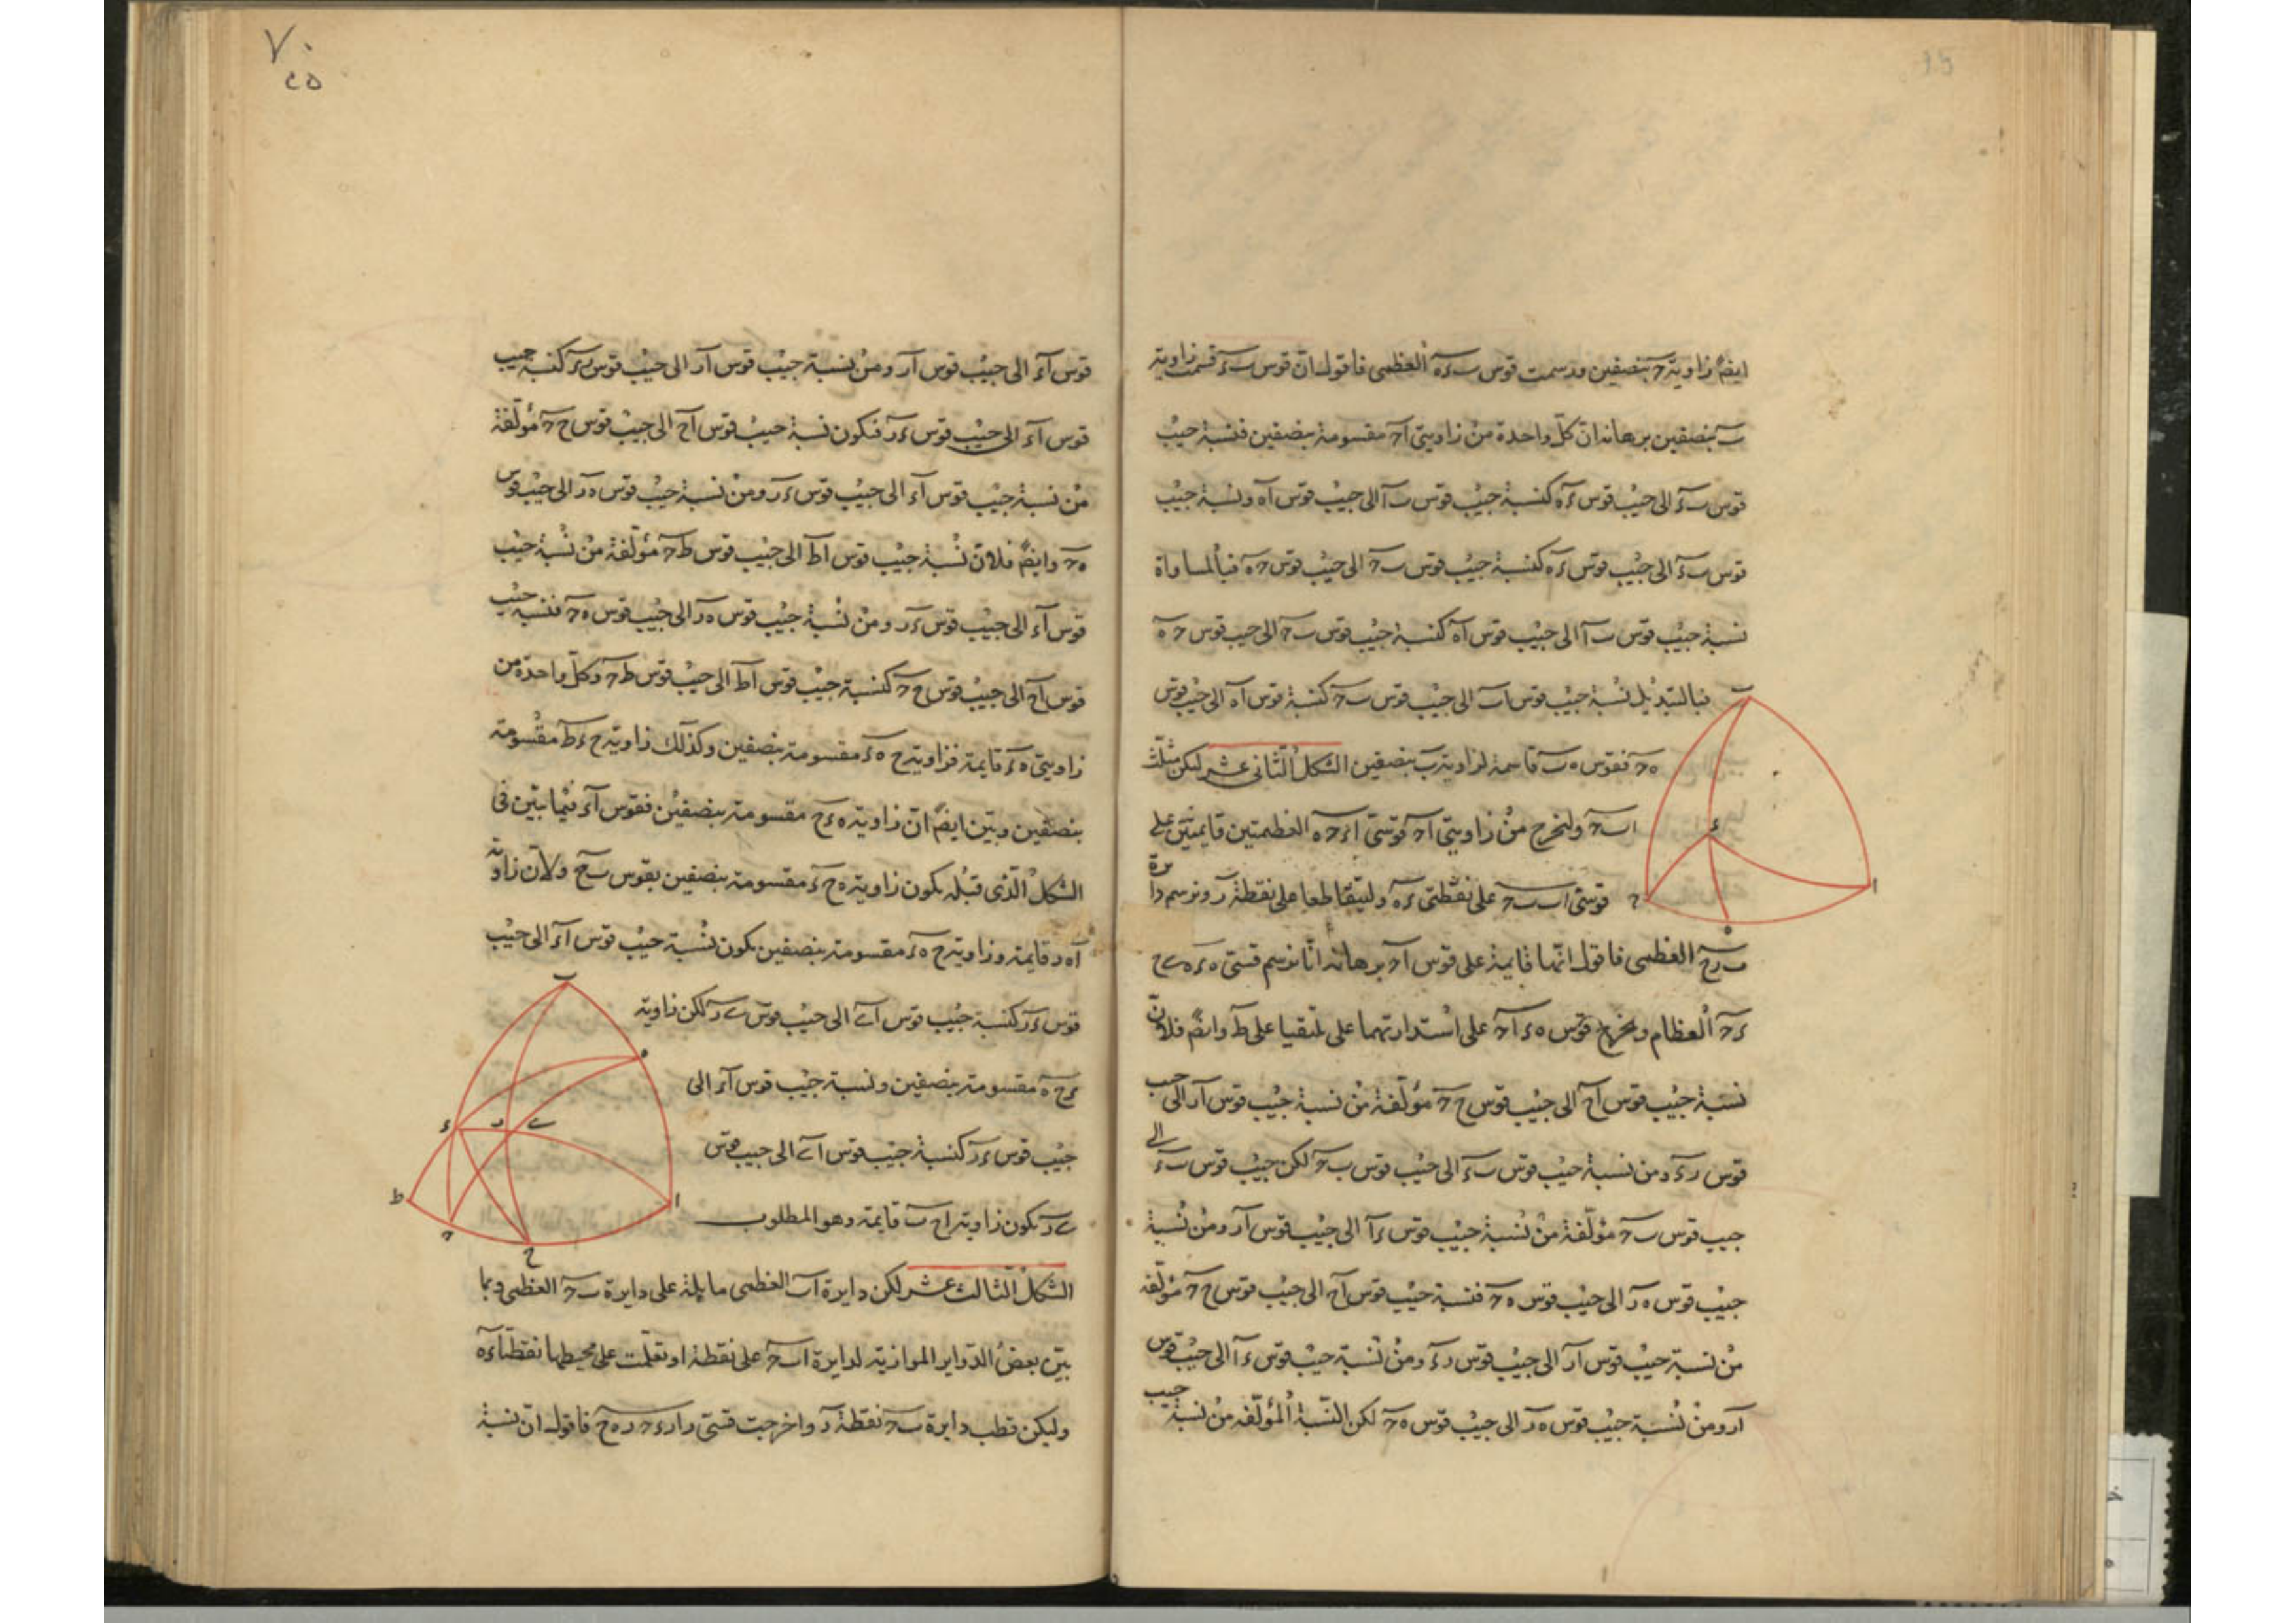 ايضا زاوية حـ بنصفين ورسمت قوس ب ء ه العظمى فاقول ان قوس ب ء قسمت زاوية
ب بنصفين برهانه ان كل واحدة من زاويتى ا حـ مقسومة بنصفين فنسبة جيب
قوس ب ء الى جيب قوس ء ه كنسبة جيب قوس ب ا الى جيب قوس ا ه ونسبة جيب
قوس ب ء الى جيب قوس ء ه كنسبة جيب قوس ب حـ الى جيب قوس حـ ه فبالمساواة
نسبة جيب قوس ب ا الى جيب قوس ا ه كنسبة جيب قوس ب حـ الى جيب قوس حـ ه
فبالتبديل نسبة جيب قوس ا ب الى جيب قوس ب حـ كنسبة قوس ا ه الى جيب قوس
ه حـ فقوس ه ب قاسمة لزاوية ب بنصفين الشكل الثانى عشر ليكن مثلث
ا ب حـ ولنخرج من زاويتى ا حـ قوسى ا ء حـ ه العظيمتين قايمتين على
قوسى ا ب ب حـ على نقطتى ء ه وليتقاطعا على نقطة ر ونرسم دايرة
ب ر ح العظمى فاقول انها قايمة على قوس ا حـ برهانه انا نرسم قسى ه ء ه ى ح
ء حـ العظام ونخرج قوسى ه ء ا حـ على استدارتهما على يلتقيا على ط وايضا فلان
نسبة جيب قوس ا ح الى جيب قوس ح حـ مؤلفة من نسبة جيب قوس ا ر الى جيب
قوس ر ء ومن نسبة جيب قوس ب ء الى جيب قوس ب حـ لكن جيب قوس ب ء الى
جيب قوس ب حـ مؤلفة من نسبة جيب قوس ء ا الى جيب قوس ا ر ومن نسبة
جيب قوس ه ر الى جيب قوس ه حـ فنسبة جيب قوس ا ح الى جيب قوس ح حـ مؤلفة
من نسبة جيب قوس ا ر الى جيب قوس ر ء ومن نسبة جيب قوس ء ا الى جيب قوس
ا ر ومن نسبة جيب قوس ه ر الى جيب قوس ه حـ لكن النسبة المؤلفة من نسبة جيب
ب
ء
ا
حـ
ه
٧٠
٢٥
قوس ا ء الى جيب قوس ا ر ومن نسبة جيب قوس ا ر الى جيب قوس ر ء كنسبة جيب
قوس ا ء الى جيب قوس ء ر فتكون نسبة جيب قوس ا ح الى جيب قوس ح حـ مؤلفة
من نسبة جيب قوس ا ء الى جيب قوس ء ر ومن نسبة جيب قوس ه ر الى جيب قوس
ه حـ وايضا فلان نسبة جيب قوس ا ط الى جيب قوس ط حـ مؤلفة من نسبة جيب
قوس ا ء الى جيب قوس ء ر ومن نسبة جيب قوس ه ر الى جيب قوس ه حـ فنسبة جيب
قوس ا ح الى جيب قوس ح حـ كنسبة جيب قوس ا ط الى جيب قوس ط حـ وكل واحدة من
زاويتى ه ء قايمة فزاوية ح ه ء مقسومة بنصفين وكذلك زاوية ح ء ط مقسومة
بنصفين وتبين ايضا ان زاوية ه ء ح مقسومة بنصفين فقوس ا ء فيما تبين فى
الشكل الذى قبله يكون زاوية ه ح ء مقسومة بنصفين بقوس ب ح ولان زاوية
ا ه ر قايمة وزاوية ح ه ء مقسومة بنصفين يكون نسبة جيب قوس ا ء الى جيب
قوس ء ر كنسبة جيب قوس ا ى الى جيب قوس ى ر لكن زاوية
ء ح ه مقسومة بنصفين ونسبة جيب قوس ا ء الى
جيب قوس ء ر كنسبة جيب قوس ا ى الى جيب قوس
ى ر يكون زاوية ا ح ب قايمة وهو المطلوب
الشكل الثالث عشر لكن دايرة ا ب العظمى مايلة على دايرة ب حـ العظمى وبما
بين بعض الدواير الموازية لدايرة ا ب حـ على نقطة ا وتعلمت على محيطها نقطتا ء ه
وليكن قطب دايرة ب حـ نقطة ر واخرجت قسى ر ا ر ء حـ ر ه ح فاقول ان نسبة
ب
ه
ء
ر
ى
ط
ا
حـ
ح